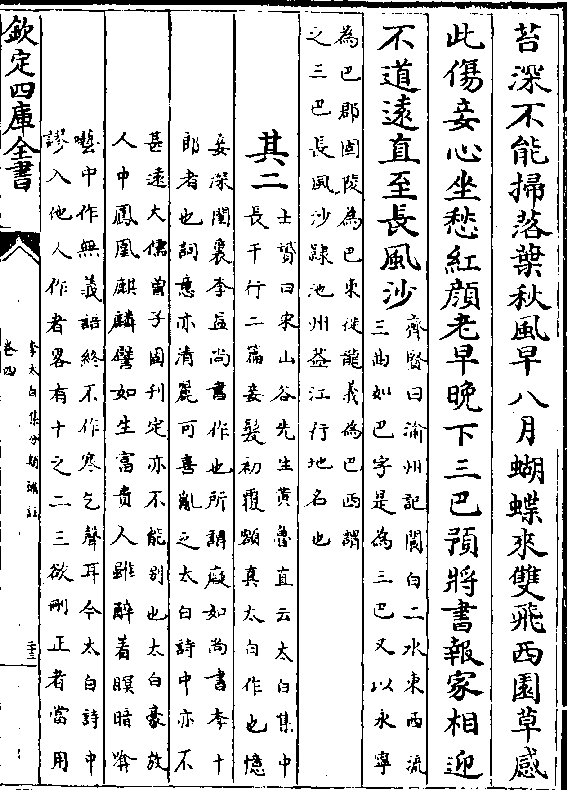 苔深不能掃落葉秋風早八月蝴蝶來雙飛西園草感
此傷妾心坐愁紅顔老早晚下三巴預將書報家相迎
不道遠直至長風沙
齊賢曰渝州記閬白二水東西流
三曲如巴字是為三巴又以永寧
為巴郡固陵為巴東從龍義為巴西謂
之三巴長風沙隸池州葢江行地名也
其二
士贇曰宋山谷先生黄魯直云太白集中
長干行二篇妾髮初覆額真太白作也憶
妾深閨裏李益尚書作也所謂癡如尚書李十
郎者也詞意亦清麗可喜亂之太白詩中亦不
甚遠大儒曾子固刊定亦不能别也太白豪放
人中鳳凰麒麟譬如生富貴人雖醉着瞑暗啽
囈中作無義語終不作寒乞聲耳今太白詩中
謬入他人作者畧有十之二三欲刪正者當用
欽定四庫全書
李太白集分類補註
卷四
二十三